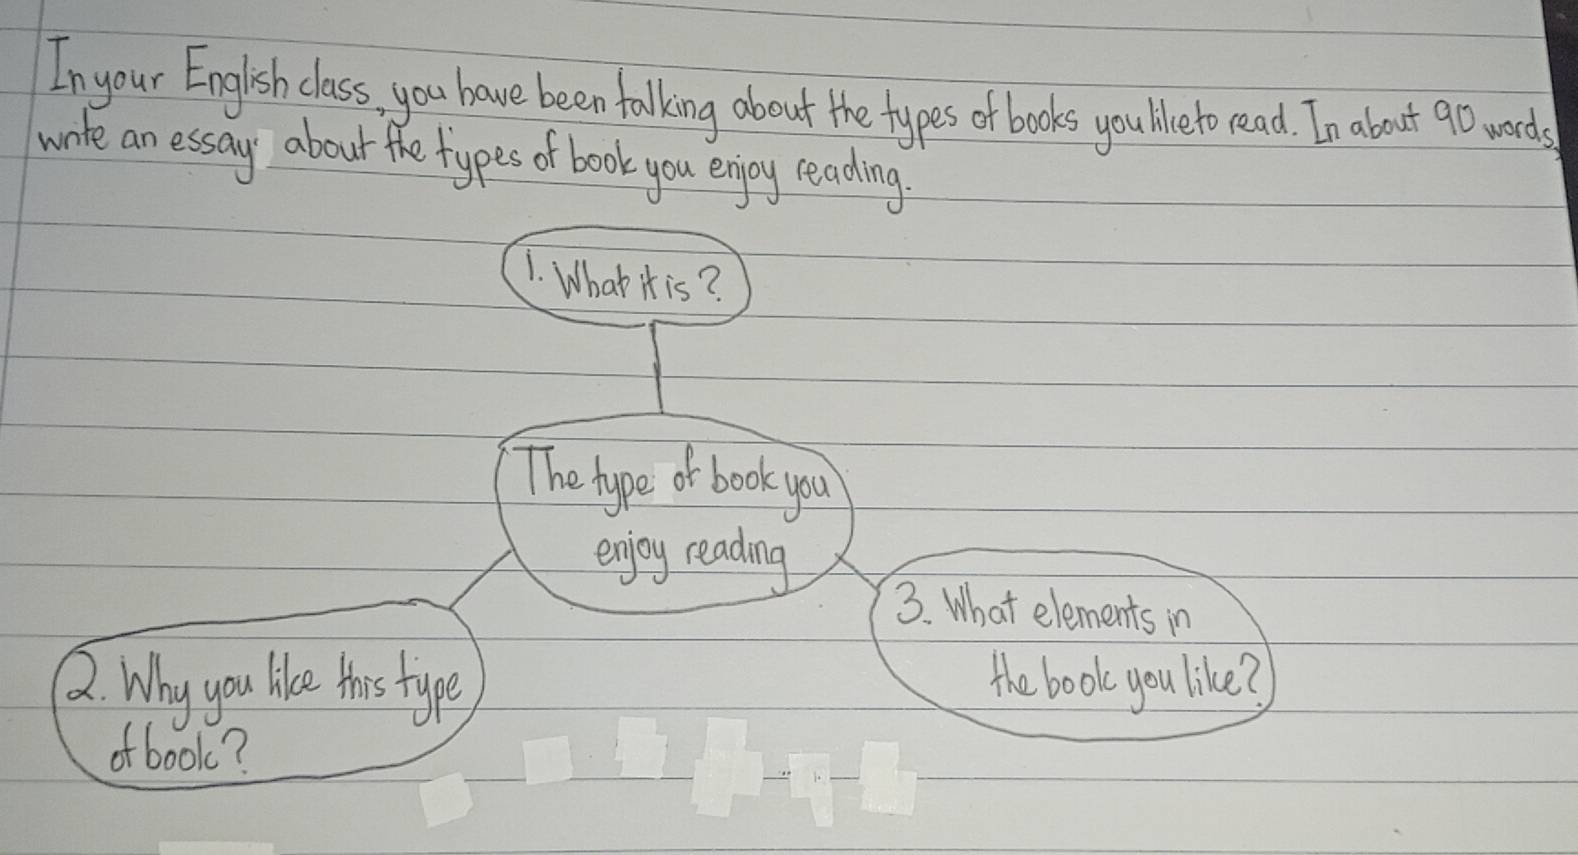 In your English class, you have been talking about the types of books you like to read. In about 90 words,
write an essay about the types of book you enjoy reading.
1. What it is?
The type of book you
enjoy reading
3. What elements in
the book you like?
2. Why you like this type
of book?